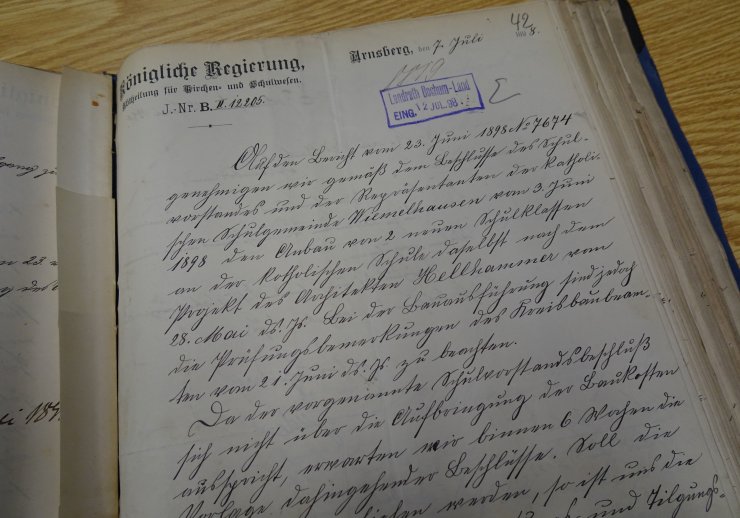 42
Königliche Regierung,
Abtheilung für Kirchen- und Schulwesen.
J.-Nr. B. II. 12205.
Arnsberg, den 7. Juli
1898.
Landrath Bochum-Land
EING. 12 JUL. 98
Auf den Bericht vom 23. Juni 1898 No 7674
genehmigen wir gemäß dem Beschlusse des Schul-
vorstandes und der Repräsentanten der katholi-
schen Schulgemeinde Wiemelhausen vom 3. Juni
1898 den Anbau von 2 neuen Schulklassen
an der katholischen Schule daselbst nach dem
Projekt des Architekten Hellhammer vom
28. Mai ds. Js. Bei der Bauausführung sind jedoch
die Prüfungsbemerkungen des Kreisbaubeam-
ten vom 21. Juni ds. Js. zu beachten.
Da der vorgenannte Schulvorstandsbeschluß
sich nicht über die Aufbringung der Baukosten
ausspricht, erwarten wir binnen 6 Wochen die
Vorlage dahingehender Beschlüsse. Soll die
werden, so ist uns die
und Tilgungs-